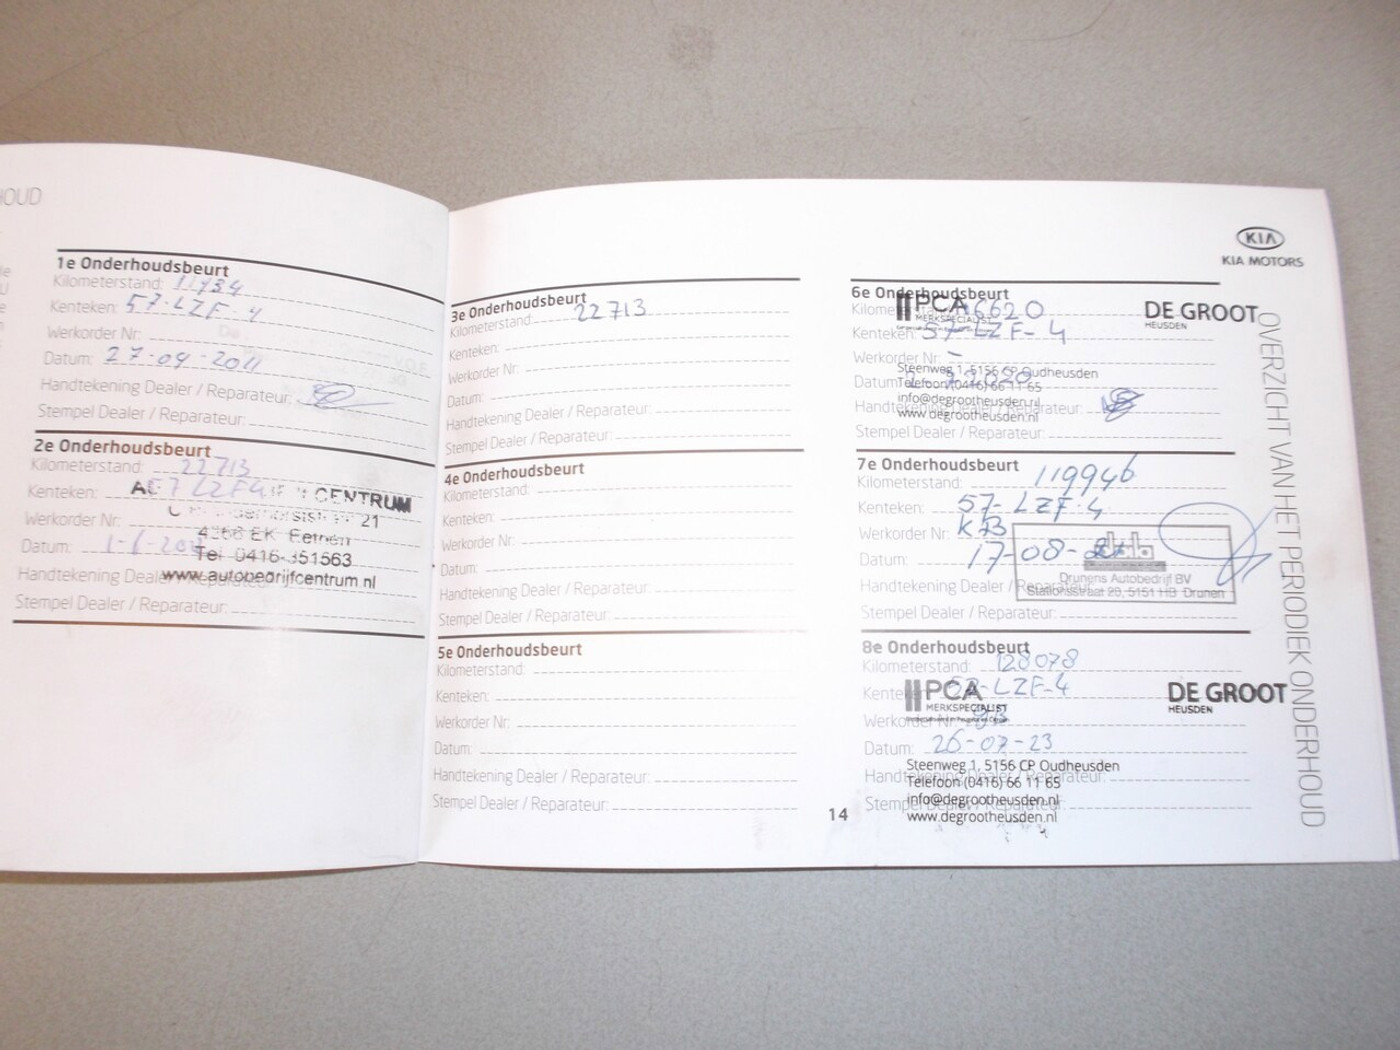 HOUD
1e Onderhoudsbeurt
Kilometerstand: 11434
Kenteken: 57-LZF-4
Werkorder Nr:
Datum: 27-04-2011
Handtekening Dealer / Reparateur:
Stempel Dealer / Reparateur:
2e Onderhoudsbeurt
Kilometerstand: 22713
Kenteken: 57 LZF4
CENTRUM
Werkorder Nr: 21
4268 EK
Datum: 1-6-20
Tel 0416-351563
Handtekening Dealer / Reparateur:
www.autobedrijfcentrum.nl
Stempel Dealer / Reparateur:
3e Onderhoudsbeurt
Kilometerstand: 22713
Kenteken:
Werkorder Nr:
Datum:
Handtekening Dealer / Reparateur:
Stempel Dealer / Reparateur:
4e Onderhoudsbeurt
Kilometerstand:
Kenteken:
Werkorder Nr:
Datum:
Handtekening Dealer / Reparateur:
Stempel Dealer / Reparateur:
5e Onderhoudsbeurt
Kilometerstand:
Kenteken:
Werkorder Nr:
Datum:
Handtekening Dealer / Reparateur:
Stempel Dealer / Reparateur:
14
KIA
KIA MOTORS
6e Onderhoudsbeurt
PCA
MERKSPECIALIST
DE GROOT
HEUSDEN
Kenteken: 57-LZF-4
Werkorder Nr: -
Steenweg 1, 5156 CP Oudheusden
Datum:
Telefoon (0416) 66 11 65
info@degrootheusden.nl
Handtekening Dealer / Reparateur:
www.degrootheusden.nl
Stempel Dealer / Reparateur:
7e Onderhoudsbeurt
Kilometerstand: 119946
Kenteken: 57-LZF-4
Werkorder Nr: KB
Datum: 17-08-
Drunens Autobedrijf BV
Handtekening Dealer / Reparateur:
Stationsstraat 20, 5151 HB Drunen
Stempel Dealer / Reparateur:
8e Onderhoudsbeurt
Kilometerstand: 128078
Kenteken: 57-LZF-4
PCA
MERKSPECIALIST
DE GROOT
HEUSDEN
Werkorder Nr:
Datum: 26-07-23
Steenweg 1, 5156 CP Oudheusden
Handtekening Dealer / Reparateur:
Telefoon (0416) 66 11 65
info@degrootheusden.nl
Stempel Dealer / Reparateur:
www.degrootheusden.nl
OVERZICHT VAN HET PERIODIEK ONDERHOUD